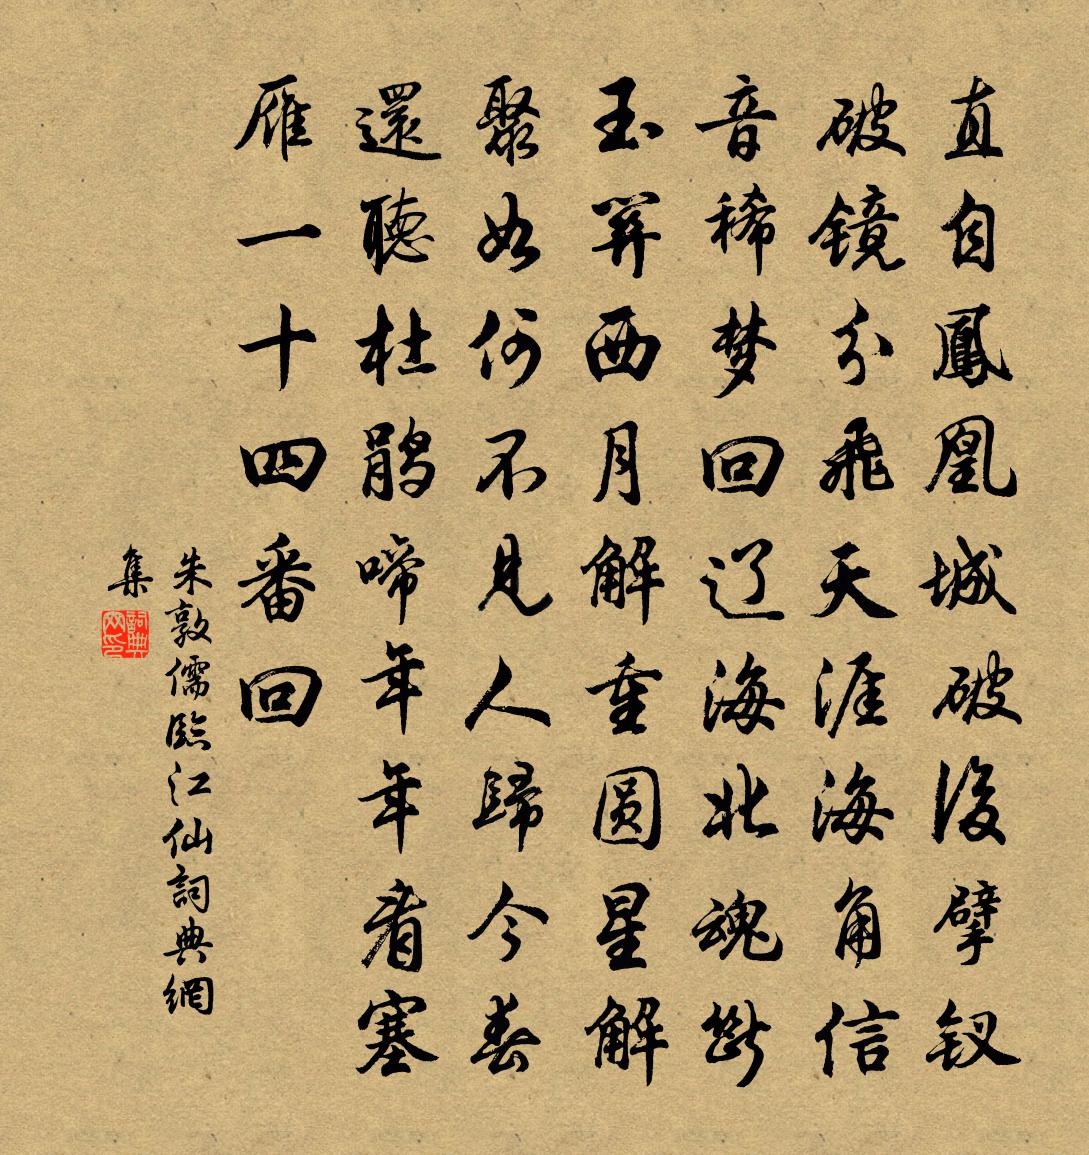 直自鳳凰城破後擘钗
破镜分飛天涯海角信
音稀梦回辽海北魂斷
玉関西月解重圆星解
聚如何不見人歸今春
還聽杜鹃啼年年看塞
雁一十四番回
朱敦儒臨江仙詞典網
集
詞典网印